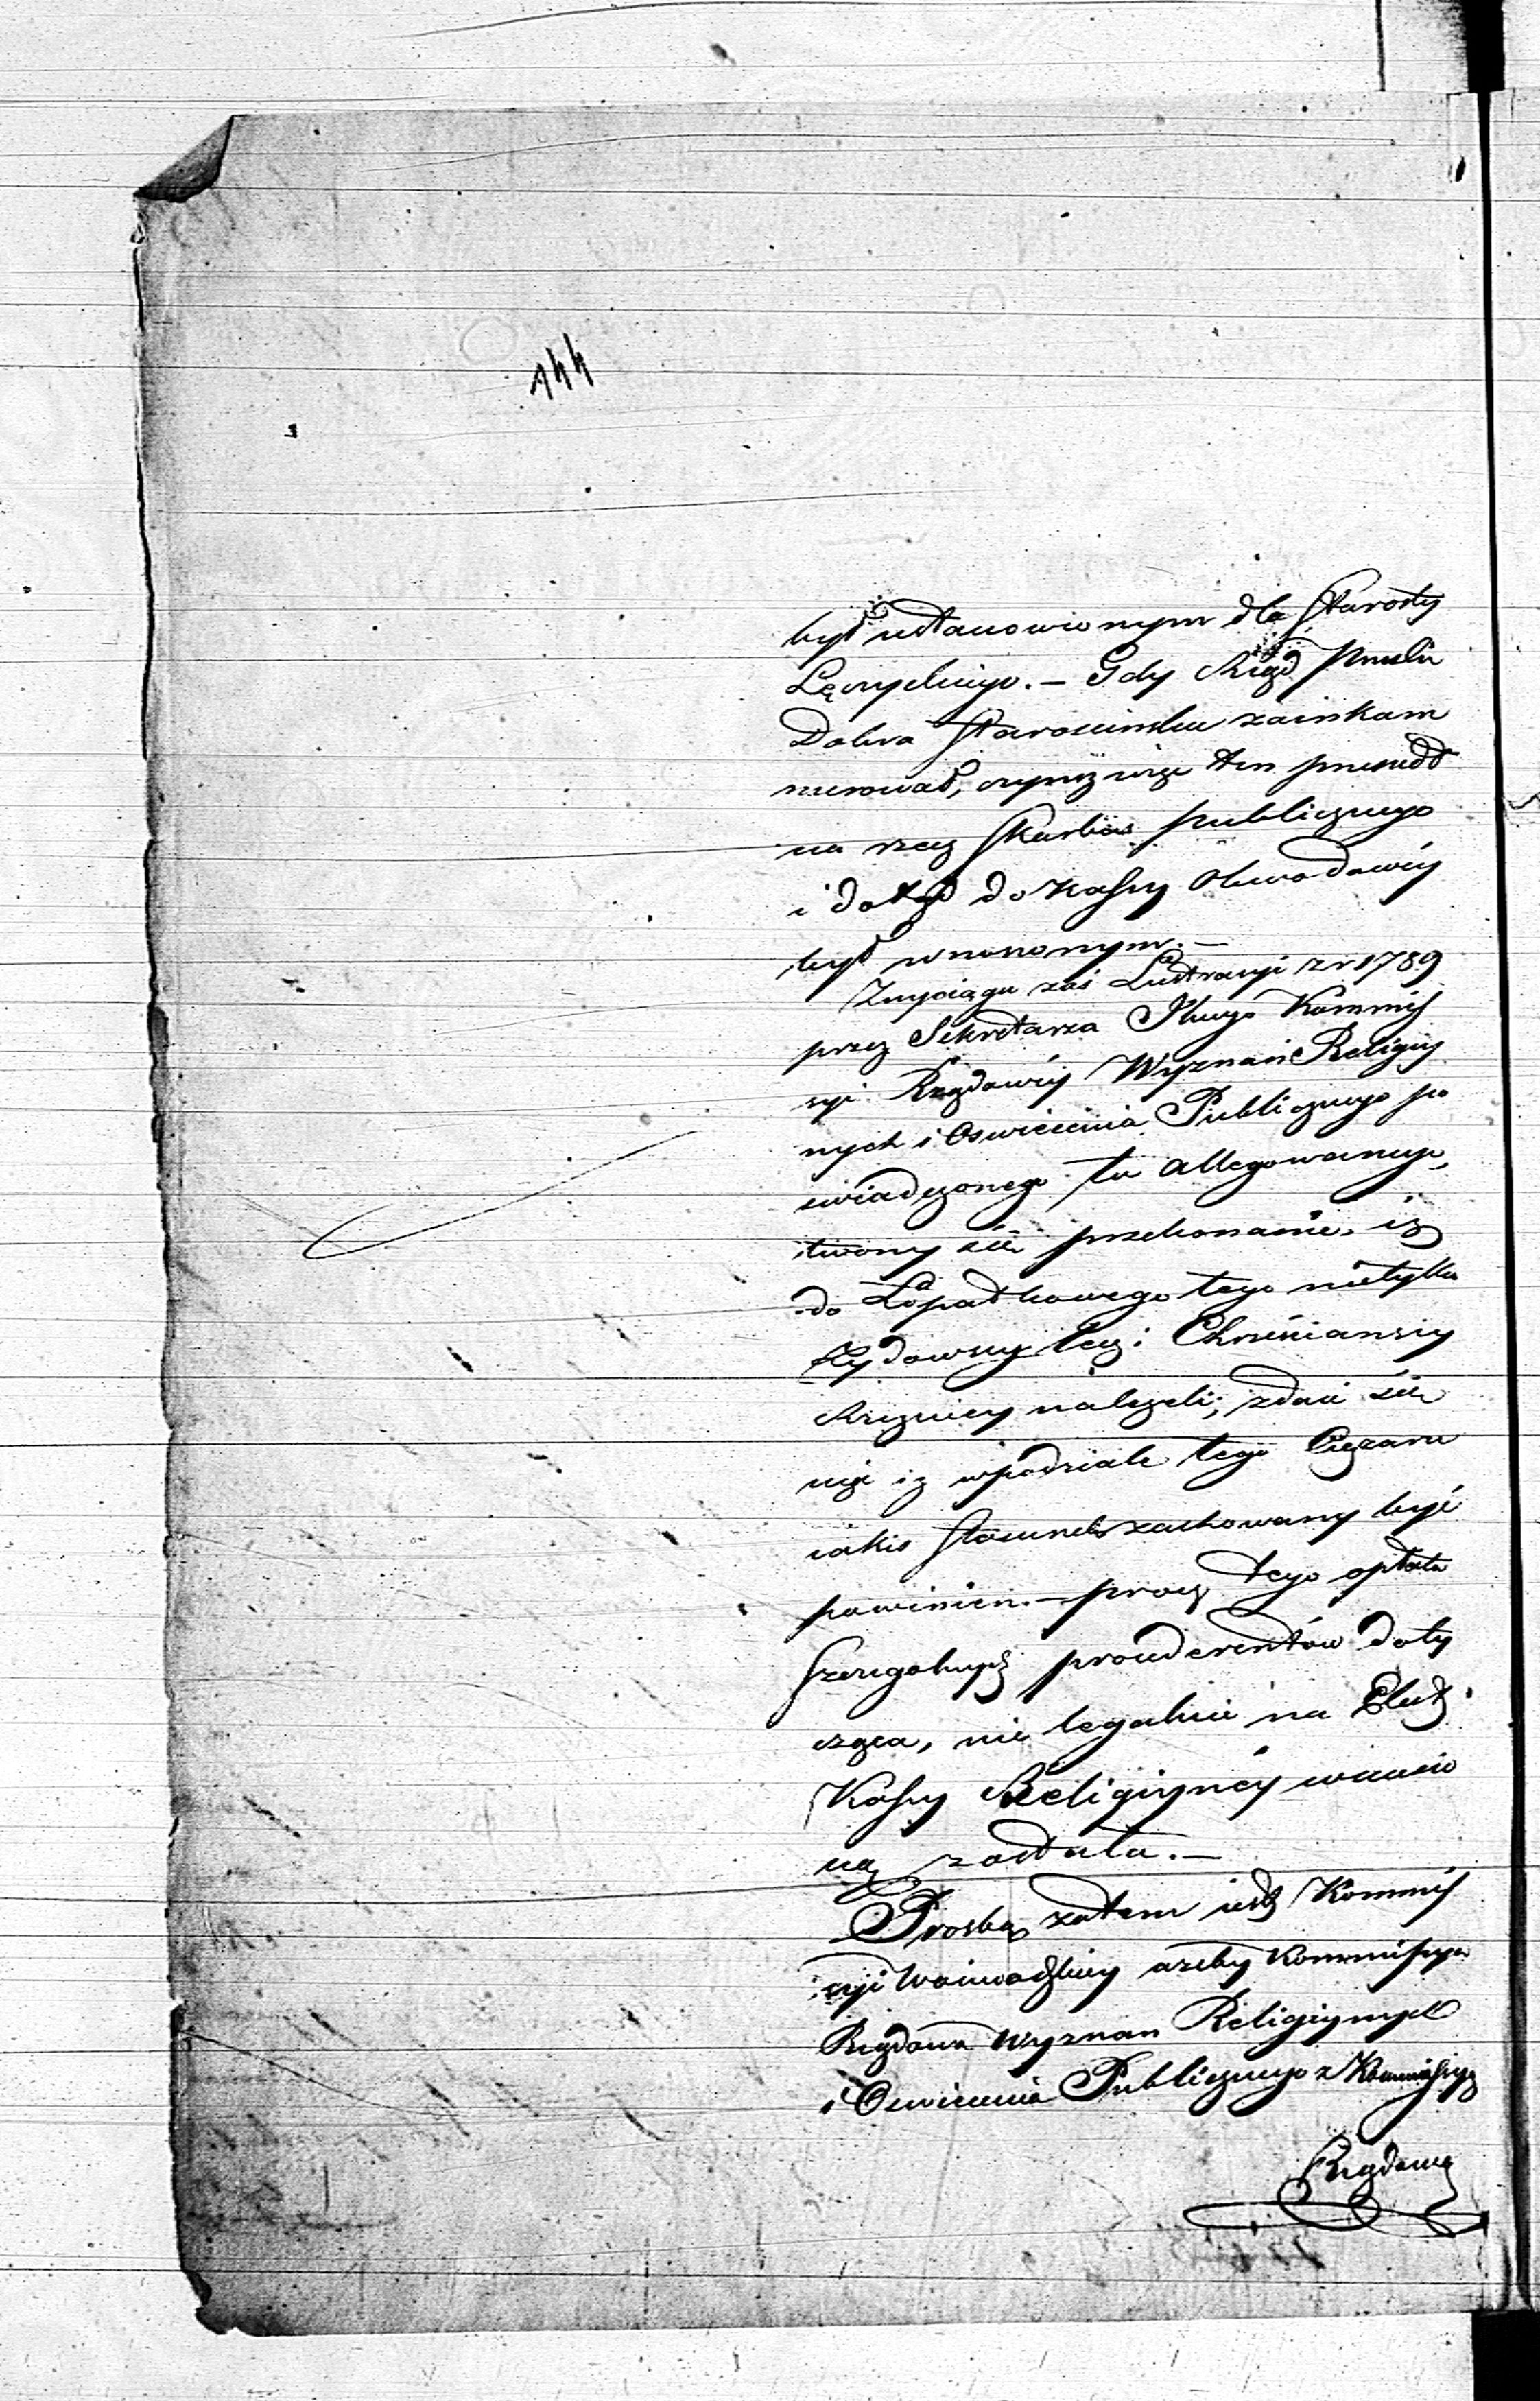 144
był ustanowionym dla Starosty
Łęczyckiego. — Gdy Rząd Pruski
Dobra Starościńskie zainkam
merował, czynsz więc ten przeszedł
na rzecz Skarbu publicznego
i dotąd do Kassy Obwodowéy
był wnoszonym. —
Z wyciągu zaś Lustracyi z r 1789
przez Sekretarza Kommis
syi Rządowéy Wyznań Religiy
nych i Oswiecenia Publicznego po
swiadczonego tu allegowanego,
tworzy się przekonanie, iż
do Łopatkowego tego nietylko
Żydowscy lecz i Chrześcianscy
Rzeznicy należeli; zdaie się
więc iż w podziale tego Ciężaru
iakis stosunek zachowany być
powinien. — procz tego opłata
szczegolnych prowderentów doty
cząca, nie legalnie na Etat
Kassy Religiynéy wniesio
ną została. —
Prosbą zatem iest Kommis
syi Woiewodzkiey azeby Kommissya
Rządowa Wyznan Religiynych
i Oswiecenia Publicznego z Kommissyą
Rządową